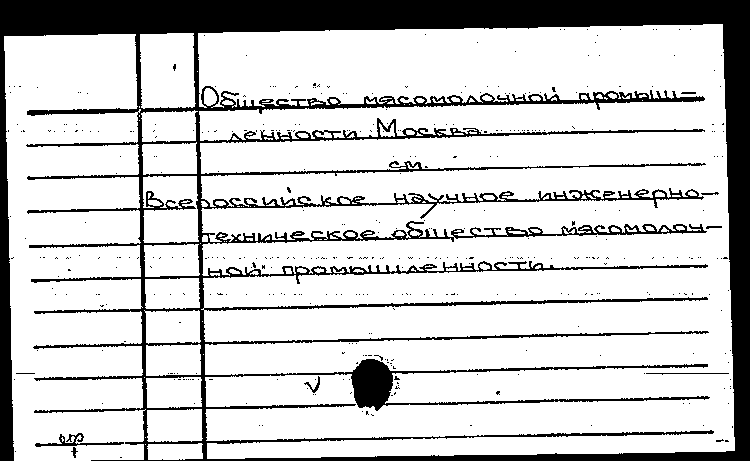 Общество мясомолочной промыш-
ленности. Москва.
см.
Всероссийское научное инженерно-
техническое общество мясомолоч-
ной промышленности.